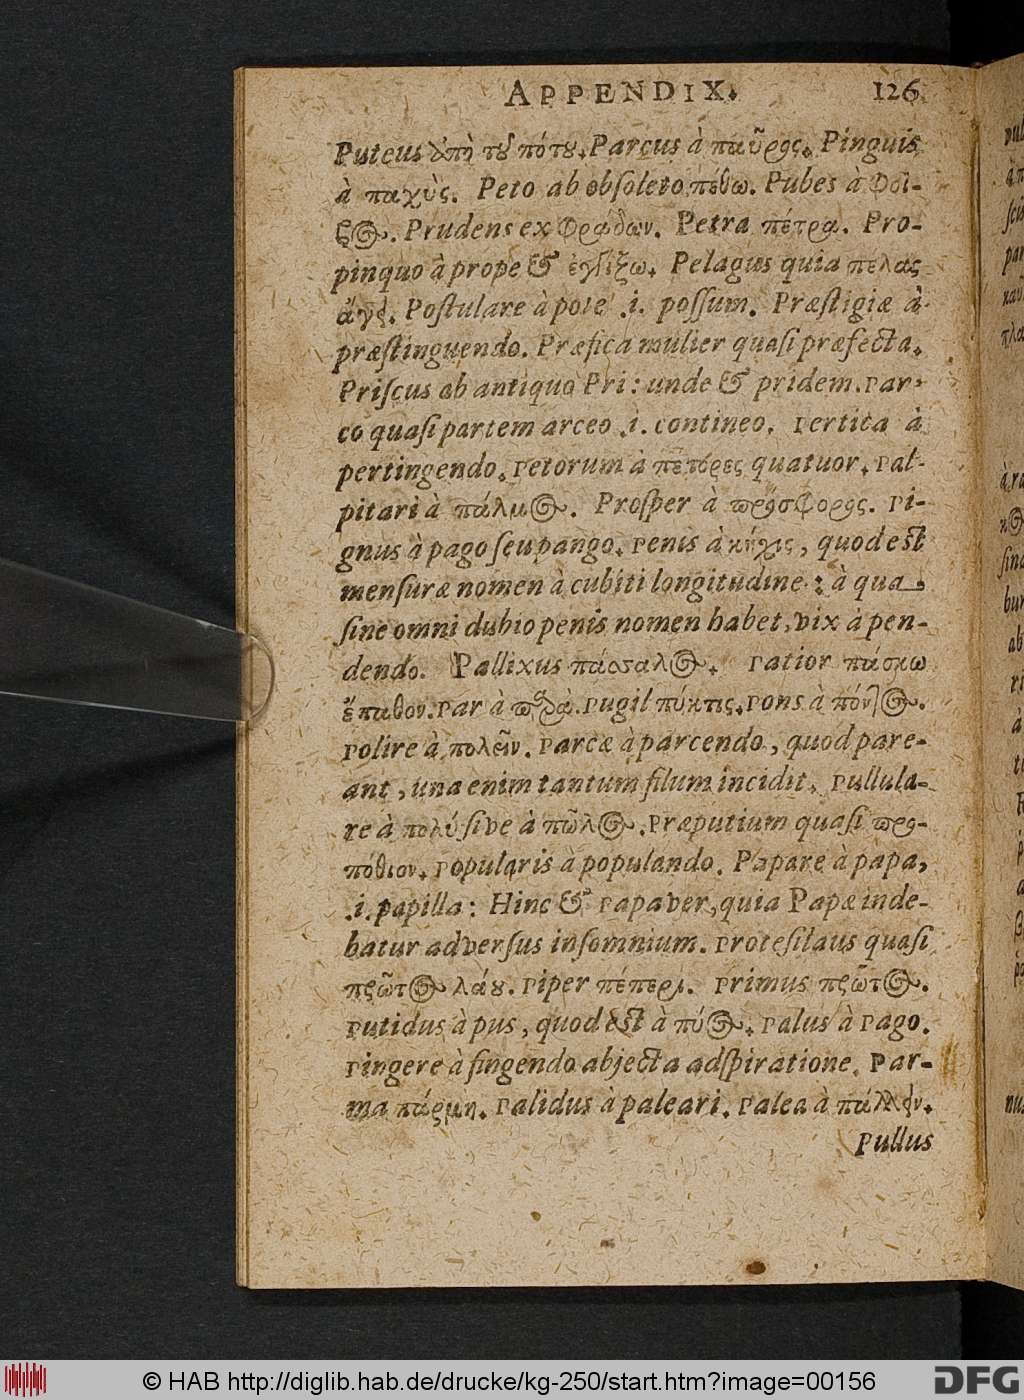 APPENDIX. 126
Puteus ἀπὸ τȣ͂ πότȣ. Parcus à παῦρος. Pinguis
à παχὺς. Peto ab obsoleto πέθω. Pubes à Φοῖ-
ϐ⊙. Prudens ex Φράδων. Petra πέτρα. Pro-
pinquo à prope & ἐγγίζω. Pelagus quia πέλας
Poſtulare à pote .i. poſſum. Præſtigiæ à
præſtinguendo. Præfica mulier quaſi præfecta.
Priſcus ab antiquo Pri: unde & pridem. Par-
co quaſi partem arceo .i. contineo. Pertica à
pertingendo. Petorum à πέτορες quatuor. Pal-
pitari à πάλμ⊙. Proſper à πρόσφορος. Pi-
gnus à pago ſeu pango. Penis à πῆχις, quod eſt
menſuræ nomen à cubiti longitudine: à qua
ſine omni dubio penis nomen habet, vix à pen-
dendo. Pallixus πάσσαλ⊙. Patior πάσκω
ἔπαθον. Par à Pugil πύκτις. Pons à πόντ⊙.
Polire à πολεῖν. Parcæ à parcendo, quod pare-
ant, una enim tantum filum incidit. Pullula-
re à πολύ ſive à πῶλ⊙. Præputium quaſi προ-
πόθιον. Popularis à populando. Papare à papa,
.i. papilla: Hinc & Papaver, quia Papæ inde-
batur adverſus inſomnium. Proteſilaus quaſi
πρῶτ⊙ λάȣ. Piper πέπερι. Primus πρῶτ⊙.
Putidus à pus, quod eſt à πύ⊙. Palus à Pago.
Pingere à fingendo abjecta adſpiratione. Par-
ma πάρμη. Palidus à paleari. Palea à πάλλειν.
Pullus
© HAB http://diglib.hab.de/drucke/kg-250/start.htm?image=00156
DFG